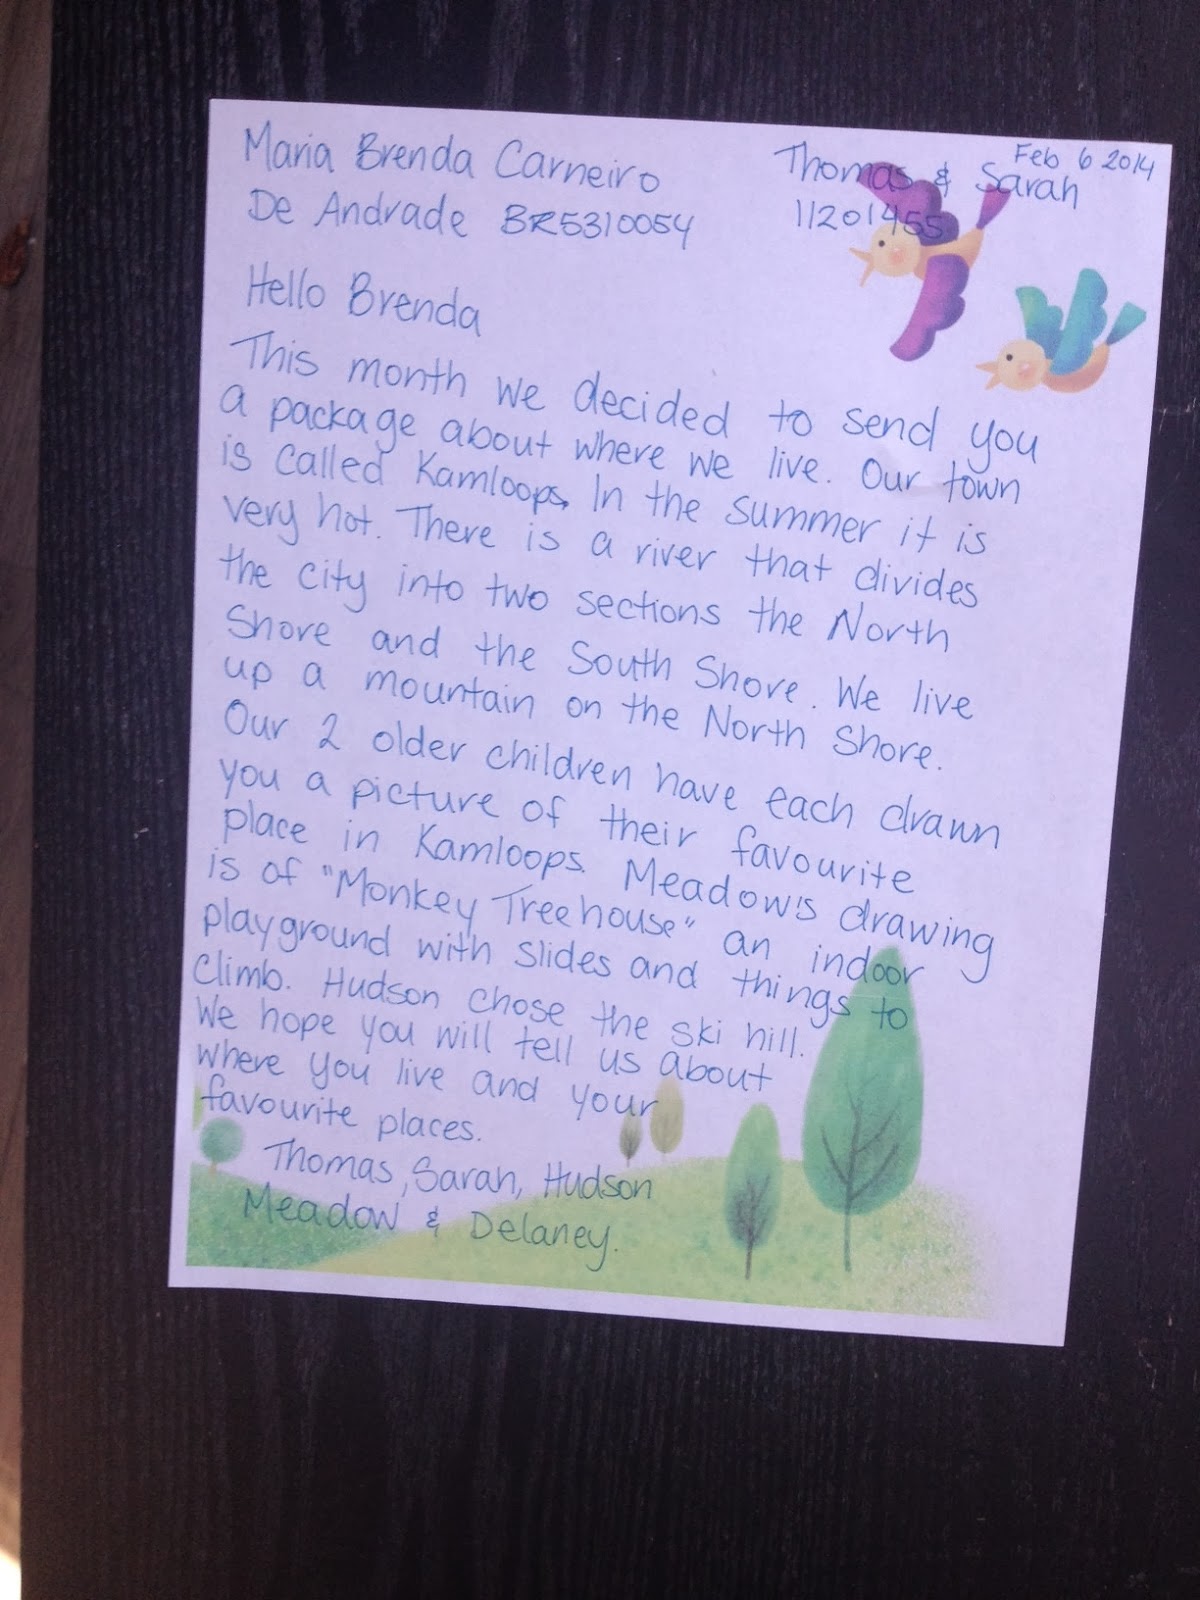 Feb 6 2014
Maria Brenda Carneiro
De Andrade BR5310054
Thomas & Sarah
11201455
Hello Brenda
This month we decided to send you
a package about where we live. Our town
is called Kamloops. In the summer it is
very hot. There is a river that divides
the city into two sections the North
Shore and the South Shore. We live
up a mountain on the North Shore.
Our 2 older children have each drawn
you a picture of their favourite
place in Kamloops. Meadow's drawing
is of "Monkey Treehouse" an indoor
playground with slides and things to
climb. Hudson chose the ski hill.
We hope you will tell us about
where you live and your
favourite places.
Thomas, Sarah, Hudson
Meadow & Delaney.